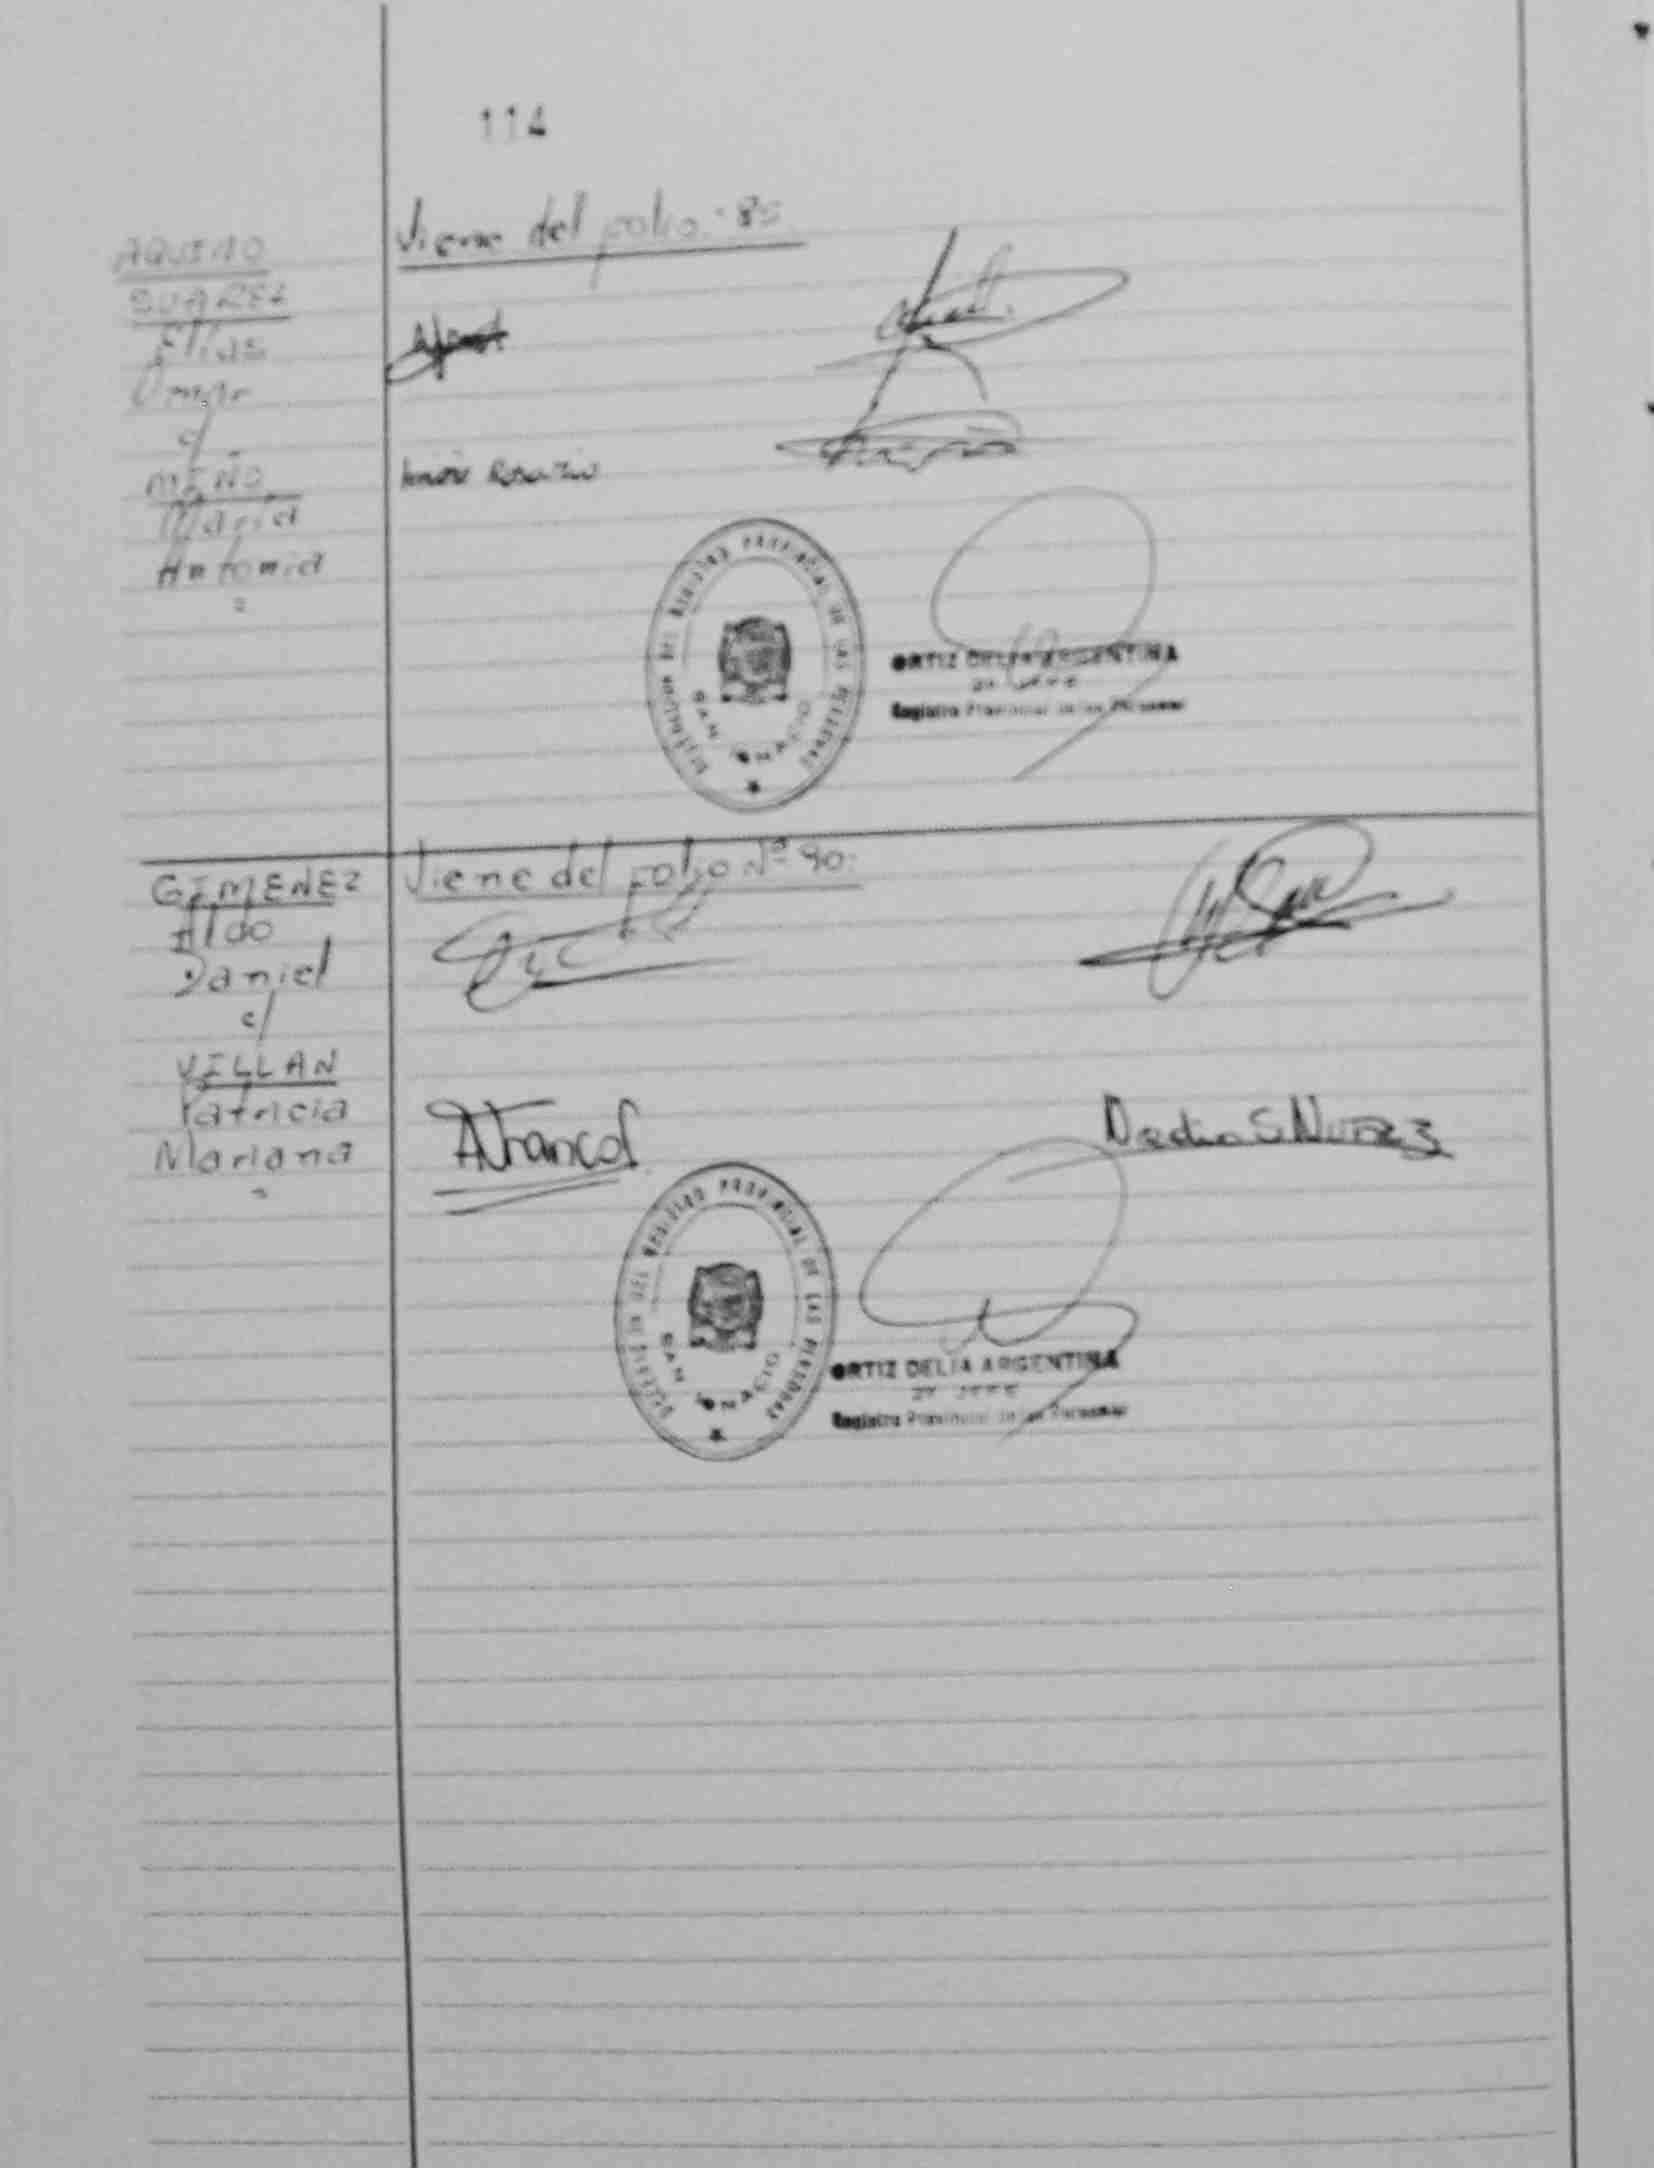 114
Viene del folio. 85.
AQUINO
SUAREZ
Elías
Omar
c/
MEÑO
María
Antonia
Rosario
DEL REGISTRO PROVINCIAL DE LAS PERSONAS
SAN IGNACIO
ORTIZ DELIA ARGENTINA
JEFE
Registro Provincial de las Personas
Viene del folio Nº 90.
GIMENEZ
Aldo
Daniel
c/
VILLAN
Patricia
Mariana
AFranco
DEL REGISTRO PROVINCIAL DE LAS PERSONAS
SAN IGNACIO
ORTIZ DELIA ARGENTINA
JEFE
Registro Provincial de las Personas